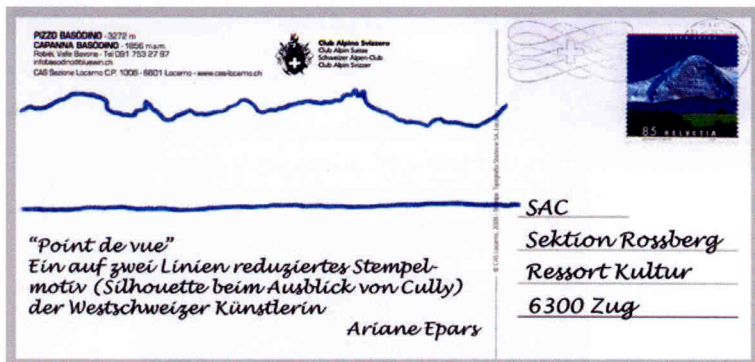 PIZZO BASÒDINO - 3272 m
CAPANNA BASÒDINO - 1856 m.s.m.
Robiei, Valle Bavona - Tel 091 753 27 97
infobasodino@bluewin.ch
CAS Sezione Locarno C.P. 1006 - 6601 Locarno - www.cas-locarno.ch
Club Alpino Svizzero
Club Alpin Suisse
Schweizer Alpen-Club
Club Alpin Svizzer
85 HELVETIA
© CAS Locarno, 2008 - Tipografia Stazione SA, Locarno
"Point de vue"
Ein auf zwei Linien reduziertes Stempel-
motiv (Silhouette beim Ausblick von Cully)
der Westschweizer Künstlerin
Ariane Epars
SAC
Sektion Rossberg
Ressort Kultur
6300 Zug